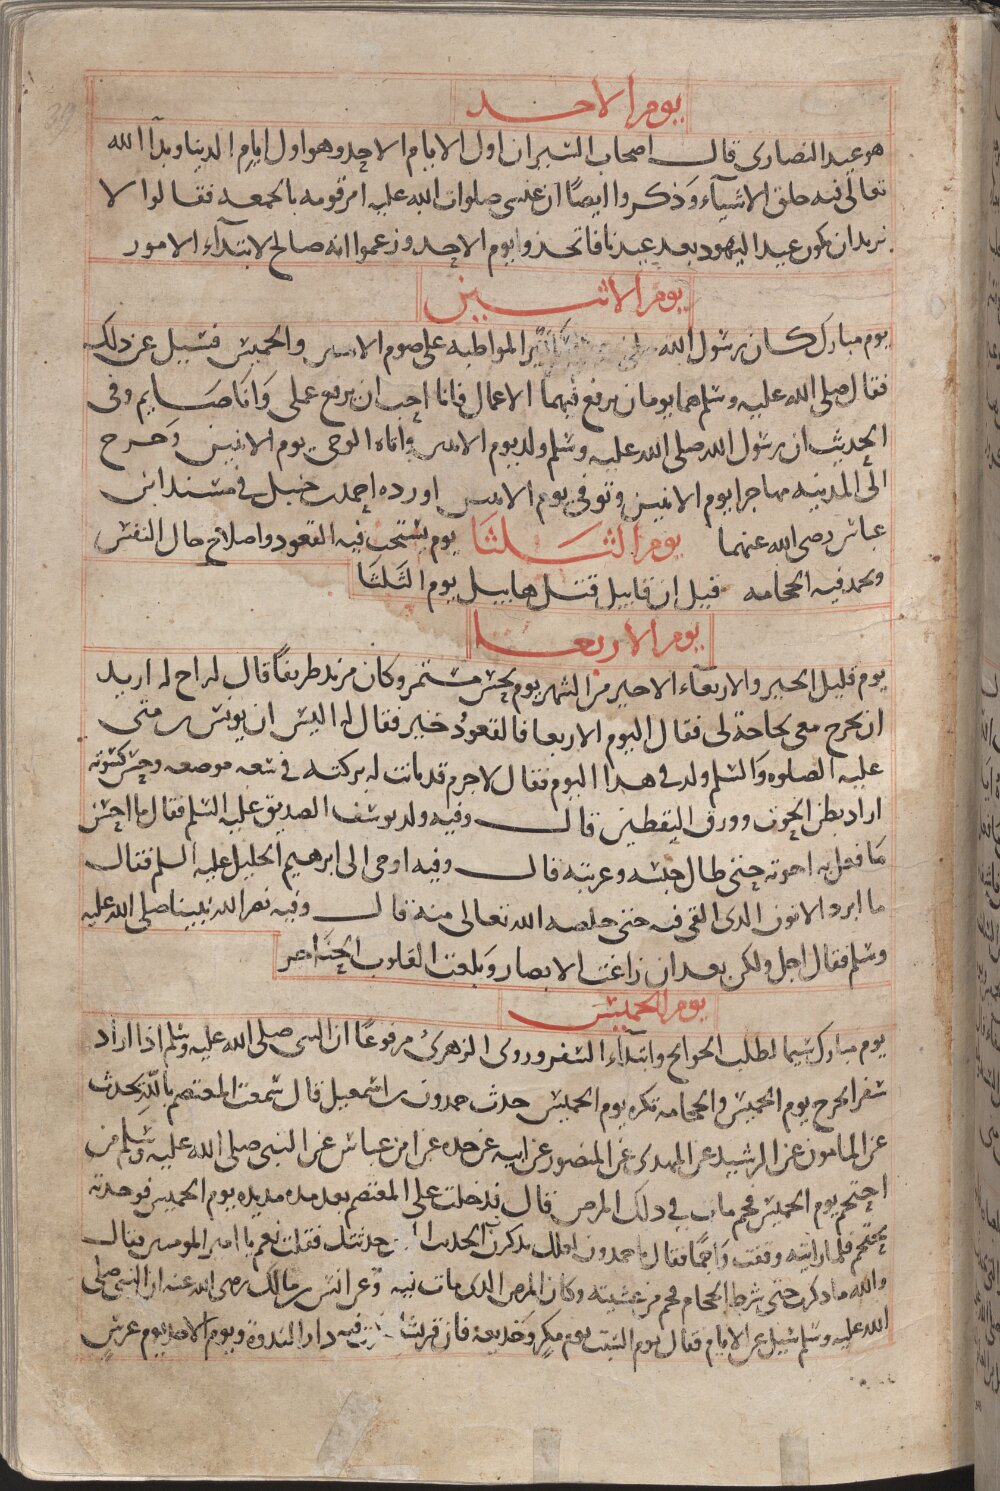 يوم الاحد
هو عيد النصارى قال اصحاب السير ان اول الايام الاحد وهو اول ايام الدنيا وبدأ الله
تعالى فيه خلق الاشيآء وذكروا ايضًا ان عيسى صلوات الله عليه امر قومه بالجمعه فقالوا لا
نريد ان يكون عيد اليهود بعد عيدنا فاتخذوا يوم الاحد وزعموا انه صالح لابتدآء الامور
يوم الاثنين
يوم مبارك كان رسول الله كثير المواظبه على صوم الاثنين والخميس فسيل عن ذلك
فقال صلى الله عليه وسلم هما يومان يرفع فيهما الاعمال فانا احب ان يرفع عملى وانا صايم وفى
الحديث ان رسول الله صلى الله عليه وسلم ولد يوم الاثنين واتاه الوحى يوم الاثنين وخرج
الى المدينه مهاجرا يوم الاثنين وتوفى يوم الاثنين اورده احمد بن حنبل فى مسند ابن
عباس رضى الله عنهما يوم الثلثا يوم يستحب فيه القعود واصلاح حال النفس
ويحمد فيه الحجامه قيل ان قابيل قتل هابيل يوم الثلثا
يوم الاربعا
يوم قليل الخير والاربعآء الاخير من الشهر يوم نحس مستمر وكان مزيد ظريفًا قال له اخ له اريد
ان تخرج معى لحاجة لى فقال اليوم الاربعا فالقعود خير فقال له اليس ان يونس بن متى
عليه الصلوه والسلم ولد فى هذا اليوم فقال لا جرم قد بانت له بركته فى سعه موضعه وحسن كسوته
اراد بطن الحوت وورق اليقطين قال وفيه ولد يوسف الصديق عليه السلم فقال ما احسن
ما فعل به اخوته حتى طال حبسه وغربته قال وفيه اوحى الى ابرهيم الخليل عليه السلم فقال
ما ابرد الاتون الذى القى فيه حتى خلصه الله تعالى منه قال وفيه نصر الله نبينا صلى الله عليه
وسلم فقال اجل ولكن بعد ان زاغت الابصار وبلغت القلوب الحناجر
يوم الخميس
يوم مبارك سيما لطلب الحوائج وابتدآء السفر وروى الزهرى مرفوعًا ان النبى صلى الله عليه وسلم اذا اراد
سفرا يخرج يوم الخميس والحجامه تكره يوم الخميس حدث حمدون بن اسمعيل قال سمعت المعتصم بالله يحدث
عن المامون عن الرشيد عن المهدى عن المنصور عن ابيه عن جده عن ابن عباس عن النبى صلى الله عليه وسلم من
احتجم يوم الخميس فحم مات فى ذلك المرض قال فدخلت على المعتصم بعد مده مديده يوم الخميس فوجدته
يحتجم فلما رايته وقفت واجمًا فقال يا حمدون لعلك تذكرت الحديث حدثتك فقلت نعم يا امير المومنين فقال
والله ما ذكرت حتى شرط الحجام فحم من عشيته وكان المرض الذى مات فيه وعن انس بن مالك رضى الله عنه ان النبى صلى
الله عليه وسلم سيل عن الايام فقال يوم السبت يوم مكر وخديعه فان قريشا فيه دار الندوة ويوم الاحد يوم غرس